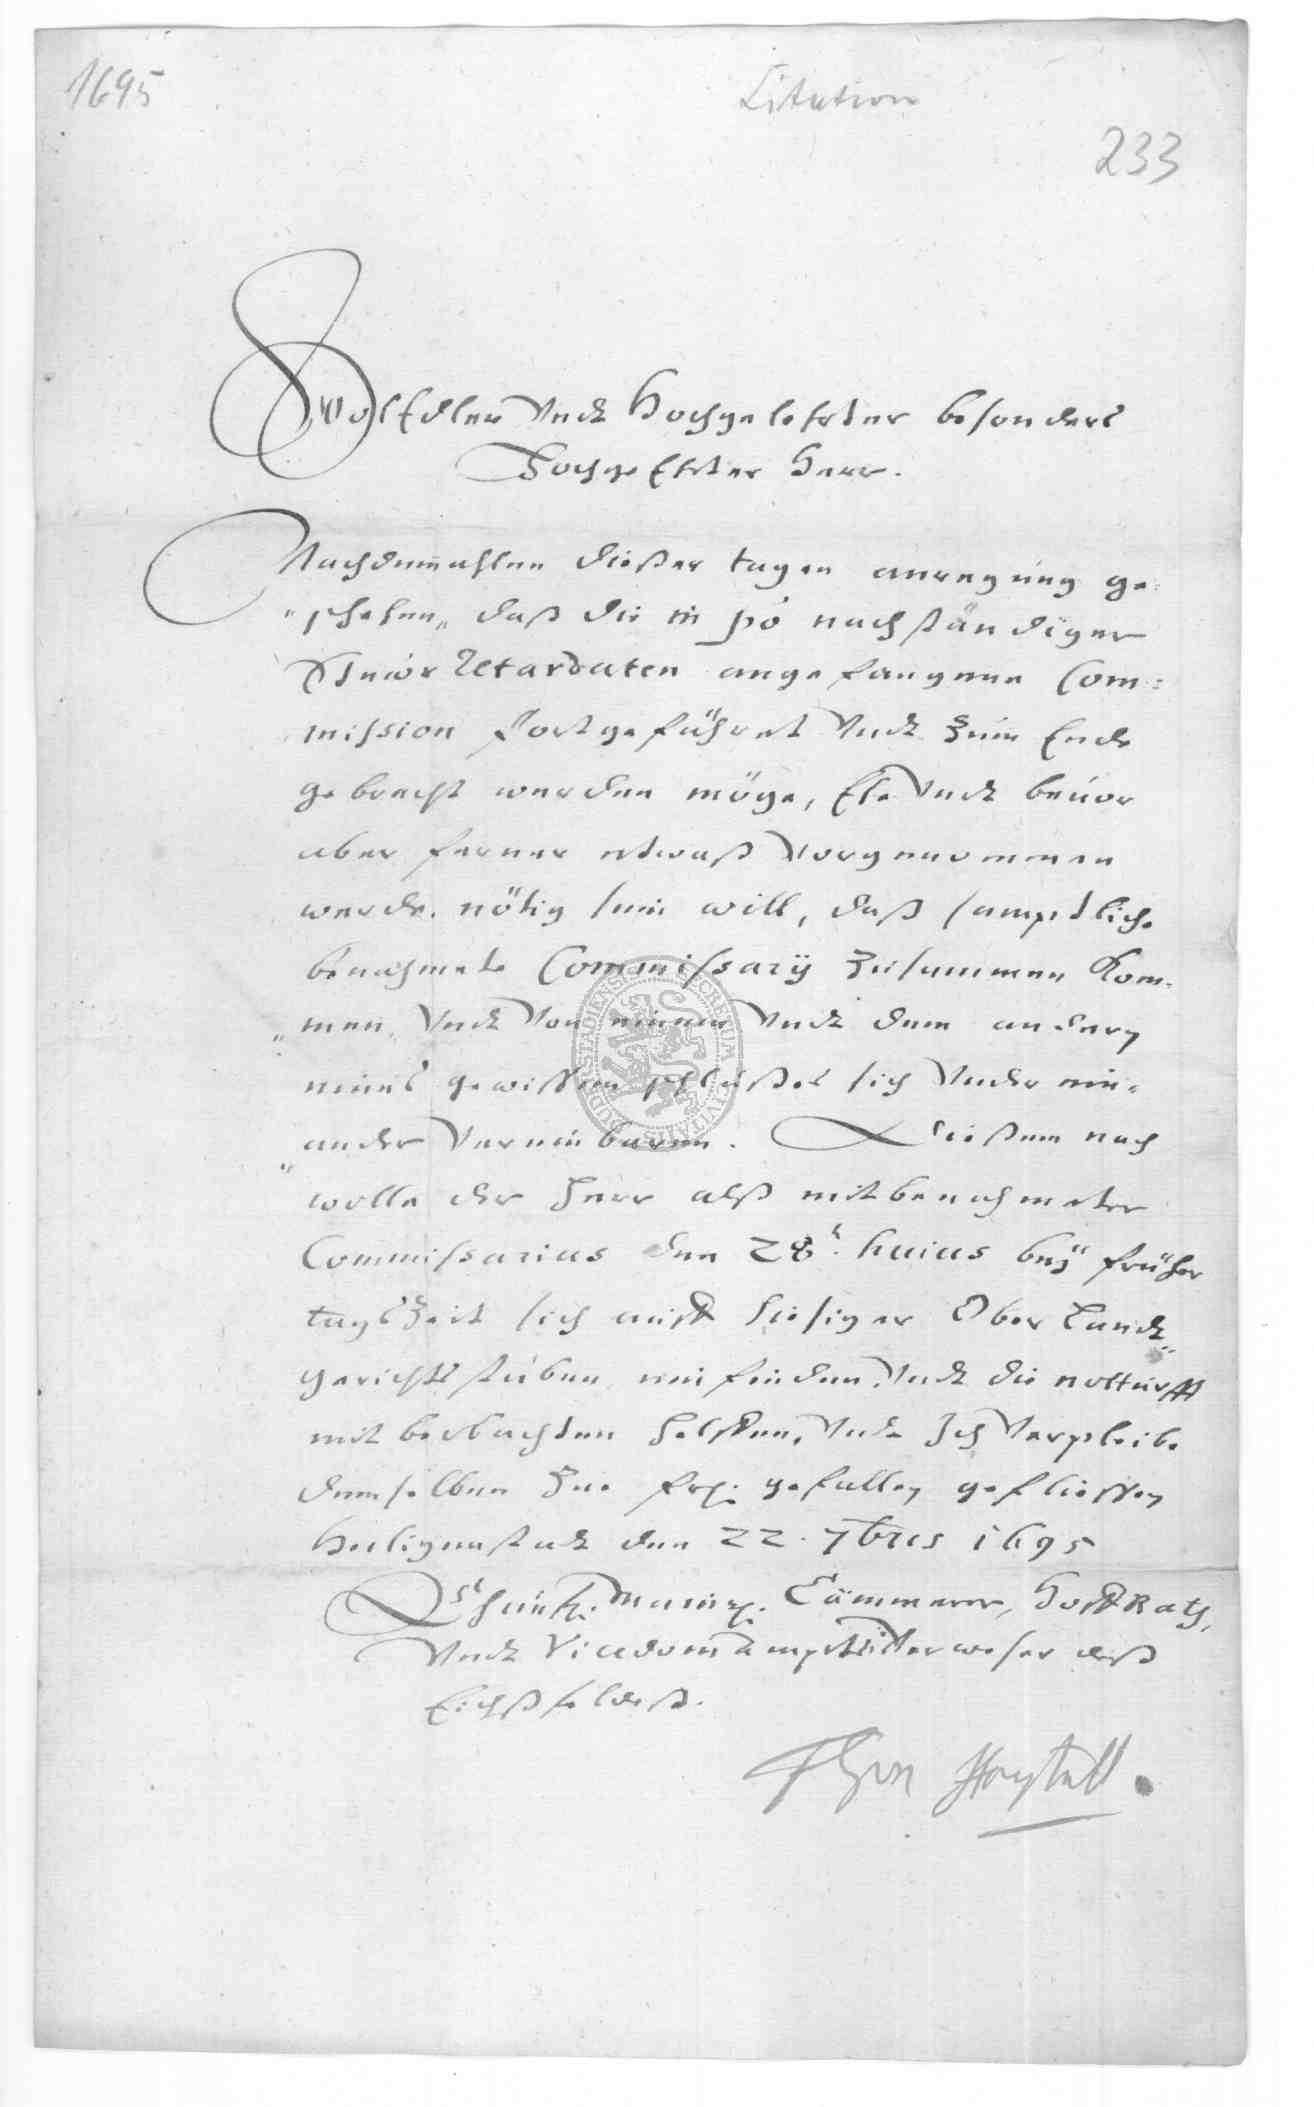 1695
Citation
233
WolEdler Vndt Hochgelehrter besonders
HochgeEhrter Herr.
Nachdemmahlen dießer tagen anregung ge-
schehen, daß die in po nachständiger
Steüer Retardaten angefangene Com-
mission fortgeführet Vndt zum Ende
gebracht werden möge, Ehe Vndt beuor
aber ferner etwaß Vorgenommen
werde, nötig sein will, daß samptliche
benahmete Commissarÿ zusammen kom-
men, Vndt Von einem Vndt dem andern
eines gewissen schlußes sich Vnder ein-
ander Vereinbaren. Dießem nach
wolle der Herr alß mitbenahmeter
Commissarius den 28t. huius beÿ früher
tagszeit sich auff hiesiger Ober Landt
gerichts stuben einfinden, Vndt die notturfft
mit beobachten helffen, Vndt Ich Verpleibe
demselben zue frl. gefallen gefliessen
Heiligenstadt den 22. 7bris 1695
Churfl. Mainz. Cämmerer, HoffRath,
Vndt Vicedomb ampts Verweser deß
Eichßfeldeß.
DUDERSTADIENSIS SECRETUM CIVITATIS